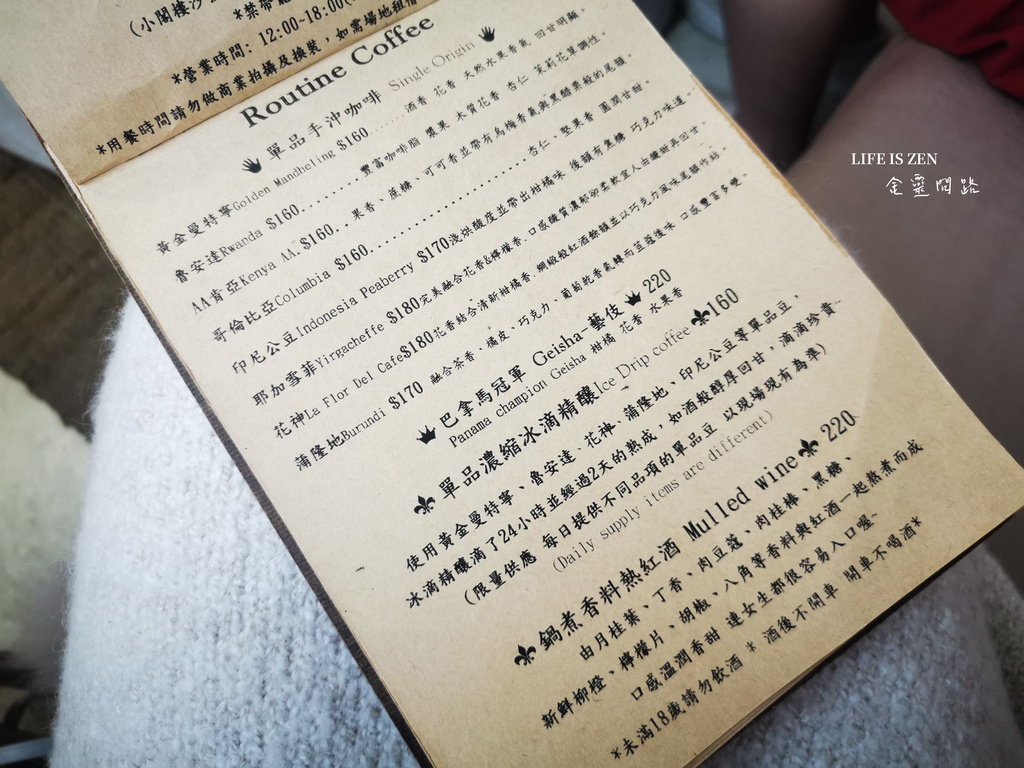 (小閣樓沙
*禁帶寵
*營業時間: 12:00~18:00(
*用餐時間請勿做商業拍攝及換裝，如需場地租借
Routine Coffee
單品手沖咖啡 Single Origin
黃金曼特寧Golden Mandheling $160......酒香 花香 天然水果香氣 回甘明顯。
魯安達Rwanda $160......豐富咖啡脂 漿果 木質花香 杏仁 茉莉花草調性。
AA肯亞Kenya AA. $160..果香、蔗糖、可可香並帶有烏梅香氣與黑醋栗般的尾韻。
哥倫比亞Columbia $160......杏仁、堅果香 圓潤甘甜。
印尼公豆Indonesia Peaberry $170淺烘酸度並帶出柑橘味 後韻有焦糖 巧克力味道。
耶加雪菲Yirgacheffe $180完美融合花香&檸檬香.口感糖質濃郁卻柔軟宜人由酸甜再回甘。
花神La Flor Del Cafe$180花香結合清新柑橘香.綢緞般紅酒餘韻並以巧克力風味尾韻作結。
蒲隆地Burundi $170 融合茶香、橘皮、巧克力、葡萄乾香氣轉而豆蔻後味 口感豐富多變。
巴拿馬冠軍 Geisha-藝伎 220
Panama champion Geisha 柑橘 花香 水果香
單品濃縮冰滴精釀Ice Drip coffee 160
使用黃金曼特寧、魯安達、花神、蒲隆地、印尼公豆等單品豆，
冰滴精釀滴了24小時並經過2天的熟成，如酒般醇厚回甘，滴滴珍貴~
(限量供應 每日提供不同品項的單品豆 以現場現有為準)
(Daily supply items are different)
鍋煮香料熱紅酒 Mulled wine 220
由月桂葉、丁香、肉豆蔻、肉桂棒、黑糖、
新鮮柳橙、檸檬片、胡椒、八角等香料與紅酒一起熬煮而成
口感溫潤香甜 連女生都很容易入口喔~
*未滿18歲請勿飲酒 * 酒後不開車 開車不喝酒*
LIFE IS ZEN
金靈問路